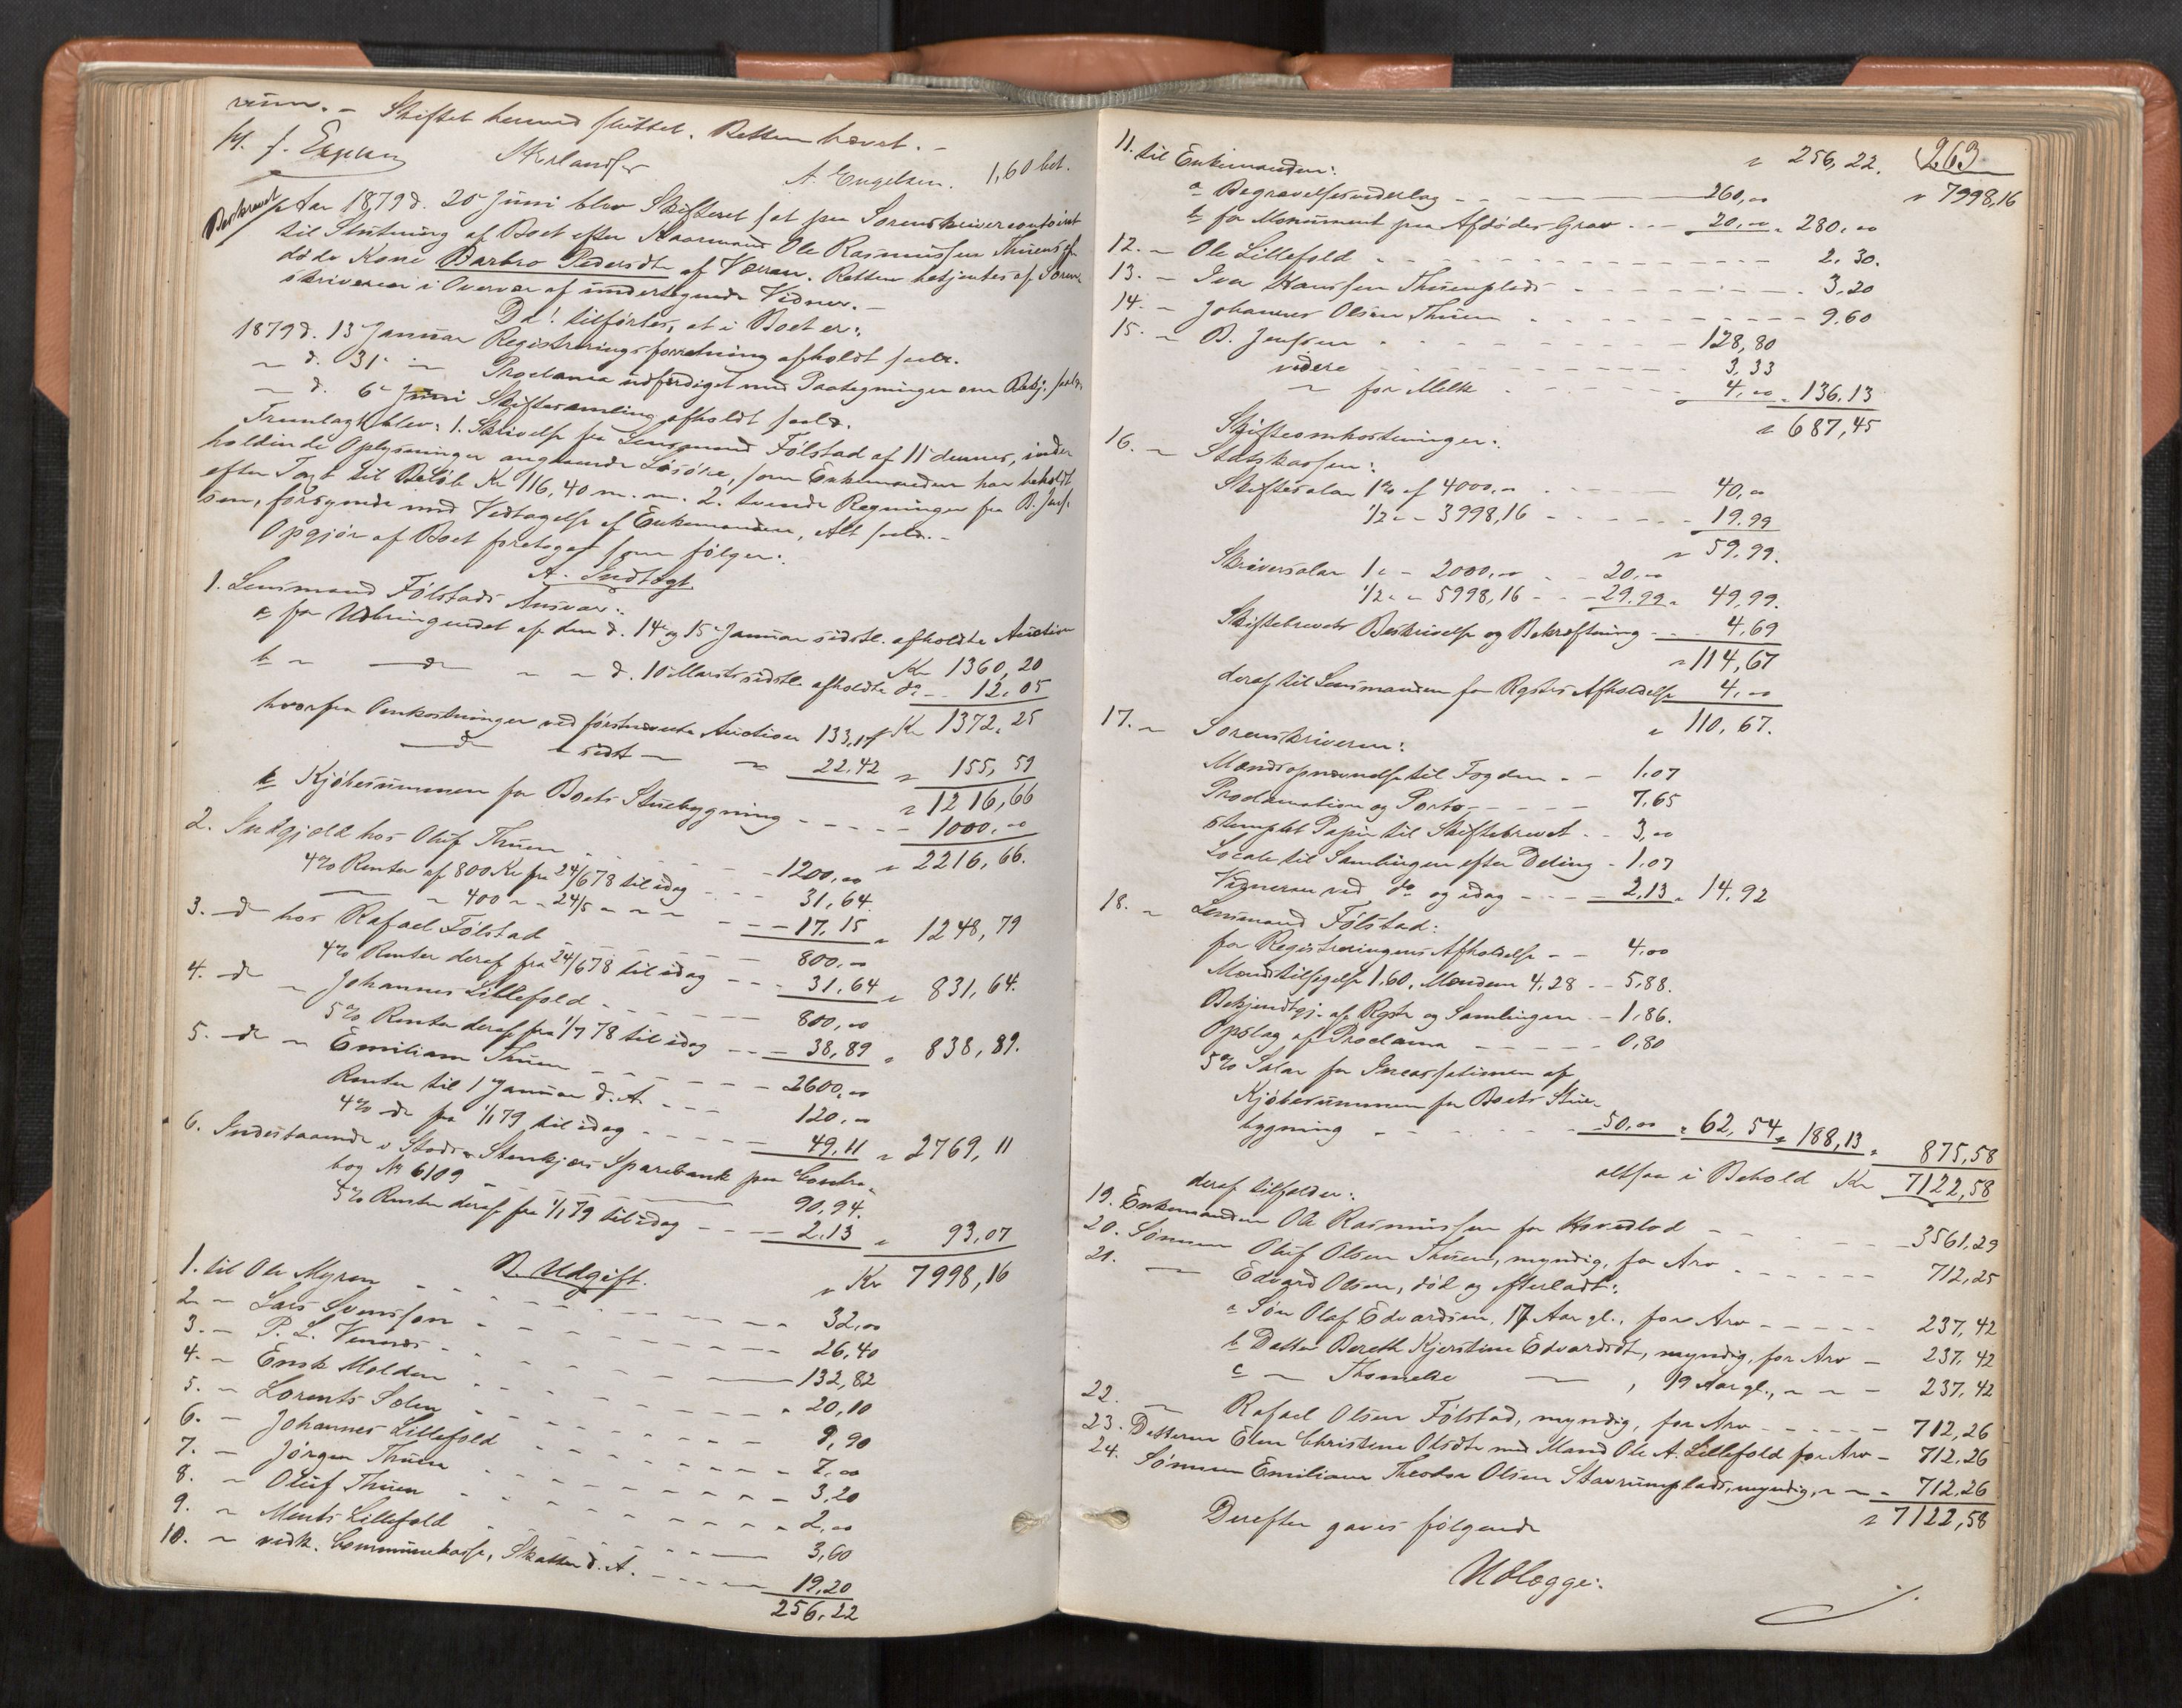 Skiftet hermed sluttet. Retten hævet. –
A. Engelsen. 1,60 bet.
Beskrevet
Aar 1879 d. 20 Juni blev Skifteret sat paa Sorenskrivercontoiret
til Slutning af Boet efter Kaarmand Ole Rasmussen Thuens af-
døde Kone Barbro Pedersdtr af Værran. Retten betjentes af Soren-
skriveren i Overvær af undertegnede Vidner. –
Da! tilførtes, at i Boet er:
1879 d. 13 Januar Registreringsforretning afholdt saal.
" d. 31 " Proclama udfærdiget med Paategninger om Bekj. saal.
" d. 6 Juni Skiftesamling afholdt saal.
Fremlagt blev: 1. Skrivelse fra Lensmand Følstad af 11 dennes, inde-
holdende Oplysninger angaaende Løsøre, som Enkemanden har beholdt
efter Taxt til Beløb Kr 116,40 m. m. 2. tvende Regninger fra B. Jens-
sen, forsynede med Vedtagelse af Enkemanden, Alt saal. –
Opgjør af Boet foretoges som følger:
A. Indtægt
1. Lensmand Følstads Ansvar:
a for Udbringendet af den d. 14 og 15 Januar sidstl. afholdte Auction
Kr 1360,20
b " – d – " " d. 10 Marts sidstl. afholdte do – 12,05
Kr 1372,25
hvorfra Omkostninger ved førstnævnte Auction 133,17
– d – " sidst – " 22,42 " 155,59
" 1216,66
c Kjøbesummen for Boets Stuebygning – – – 1000,00
" 2216,66.
2. Indgjæld hos Oluf Thuen – – – 1200,00
4% Renter af 800 Kr fra 24/6 78 til idag – – – 31,64
– " 400 " " 24/5 " " " – – – 17,15 " 1248,79
3. d hos Rafael Følstad – – – 800,00
4% Renter deraf fra 24/6 78 til idag – – – 31,64 " 831,64.
4. d " Johannes Lillefold – – – 800,00
5% Renter deraf fra 1/7 78 til idag – – – 38,89 " 838,89.
5. d " Emilian Thuen – – – 2600,00
Renter til 1 Januar d. A. – – – 120,00
4% d fra 1/1 79 til idag – – – 49,11 " 2769,11
6. Indestaaende i Stods & Stenkjærs Sparebank paa Contra-
bog No 6109 – – – 90,94.
5% Renter deraf fra 1/1 79 til idag – – – 2,13 " 93,07
" Kr 7998,16
B. Udgift.
1. til Ole Myren – – – 32,00
2. " Lars Svensson – – – 26,40
3. " P. L. – – – 132,82
4. " Enok Molden – – – 20,10
5. " Lorents Solem – – – 9,90
6. " Johannes Lillefold – – – 7,00
7. " Jørgen Thuen – – – 3,20
8. " Oluf Thuen – – – 2,00
9. " Ments Lillefold – – – 3,60
10. " vedk. Communekasse, Skatten d. A. – – – 19,20
256,22
263
" 256,22.
" 7998,16
11. til Enkemanden:
a Begravelsesvederlag – – – 260,00
b for Monument paa Afdødes Grav – – – 20,00 " 280,00
12. " Ole Lillefold – – – 2,30.
13. " Iver Hanssen Thuenplads – – – 3,20
14. " Johannes Olsen Thuen – – – 9,60
15. " B. Jenssen – – – 128,80
videre – – – 3,33
" for Melk – – – 4,00 " 136,13
" 687,45
Skifteomkostninger:
16. " Statskassen:
Skiftesalær 1% af 4000,00 – – – 40,00
1/2 " " 3998,16 – – – 19,99
" 59,99.
Skriversalær 1 " – 2000,00 – – 20,00
1/2 " – 5998,16 – – 29,99 " 49,99.
Skiftebrevets Beskrivelse og Bekræftning – – – 4,69
" 114,67
deraf til Lensmanden for Rgstrs Afholdelse 4,00
" 110,67.
17. " Sorenskriveren:
Mændsopnævnelse til Fogden – – 1,07
Proclamation og Porto – – – 7,65
stemplet Papir til Skiftebrevet – – 3,00
Locale til Samlingen efter Deling – 1,07
Vidnerne ved do og idag – – – 2,13 " 14,92
18. " Lensmand Følstad:
for Registreringens Afholdelse – – 4,00
Mændstilsigelse 1,60. Mændene 4,28 – – 5,88.
Bekjendtgj. af Rgstr og Samlingen – 1,86.
Opslag af Proclama – – – 0,80
5% Salær for Incassationen af
Kjøbesummen for Boets Stue-
bygning – – – 50,00 " 62,54 " 188,13 " 875,58
altsaa i Behold Kr 7122,58
deraf tilfalder:
19. Enkemanden Ole Rasmussen for Hovedlod – – – 3561,29
20. Sønnen Oluf Olsen Thuen, myndig, for Arv – – – 712,25
21. – Edvard Olsen, død og efterladt:
a Søn Olaf Edvardsen, 17 Aar gl., for Arv – – – 237,42
b Datter Bereth Kjerstine Edvardsdtr, myndig, for Arv – 237,42
c " Thomelie – , 19 Aar gl., " " – 237,42
22. – Rafael Olsen Følstad, myndig, for Arv – – – 712,26
23. Datteren Elen Christine Olsdtr med Mand Ole A. Lillefold for Arv – 712,26
24. Sønnen Emilian Theodor Olsen Stavrumplads, myndig, " " – 712,26
" 7122,58
Derefter gaves følgende
Udlægge: